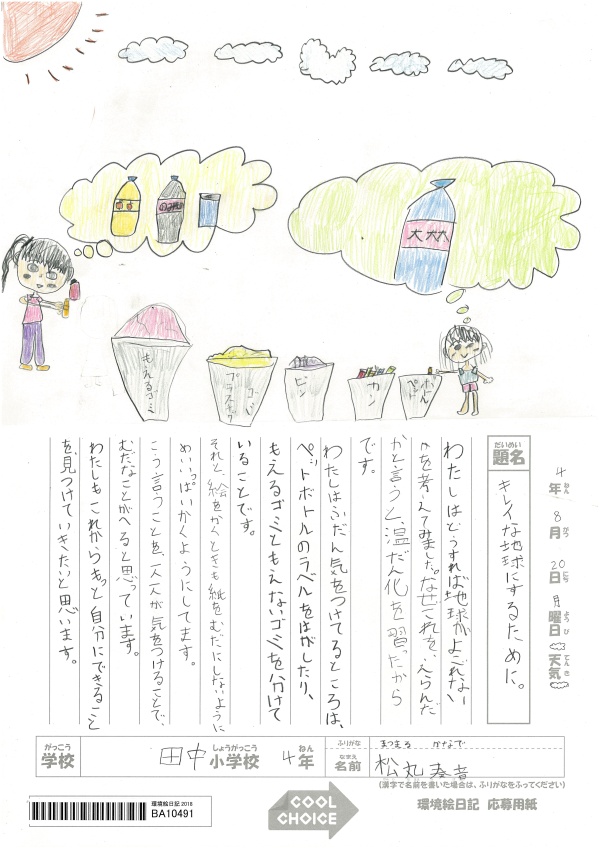 大 大大
もえるゴミ
ビン
カン
4年 8月 20日 月曜日 天気
ねん がつ にち ようび てんき
だいめい
題名
キレイな地球にするために。
わたしはどうすれば地球がよごれない
かを考えてみました。なぜこれを、えらんだ
かと言うと、温だん化を習ったから
です。
わたしはふだん気をつけてるところは、
ペットボトルのラベルをはがしたり、
もえるゴミともえないゴミを分けて
いることです。
それと、絵をかくときも紙をむだにしないように
めいいっぱいかくようにしてます。
こう言うことを一人一人が気をつけることで、
むだなことがへると思っています。
わたしもこれからもっと自分にできること
を見つけていきたいと思います。
がっこう しょうがっこう ねん
学校 田中小学校 4年
ふりがな まつまる かなで
なまえ
名前 松丸奏音
(漢字で名前を書いた場合は、ふりがなをふってください)
環境絵日記 2018
BA10491
COOL
CHOICE
環境絵日記 応募用紙